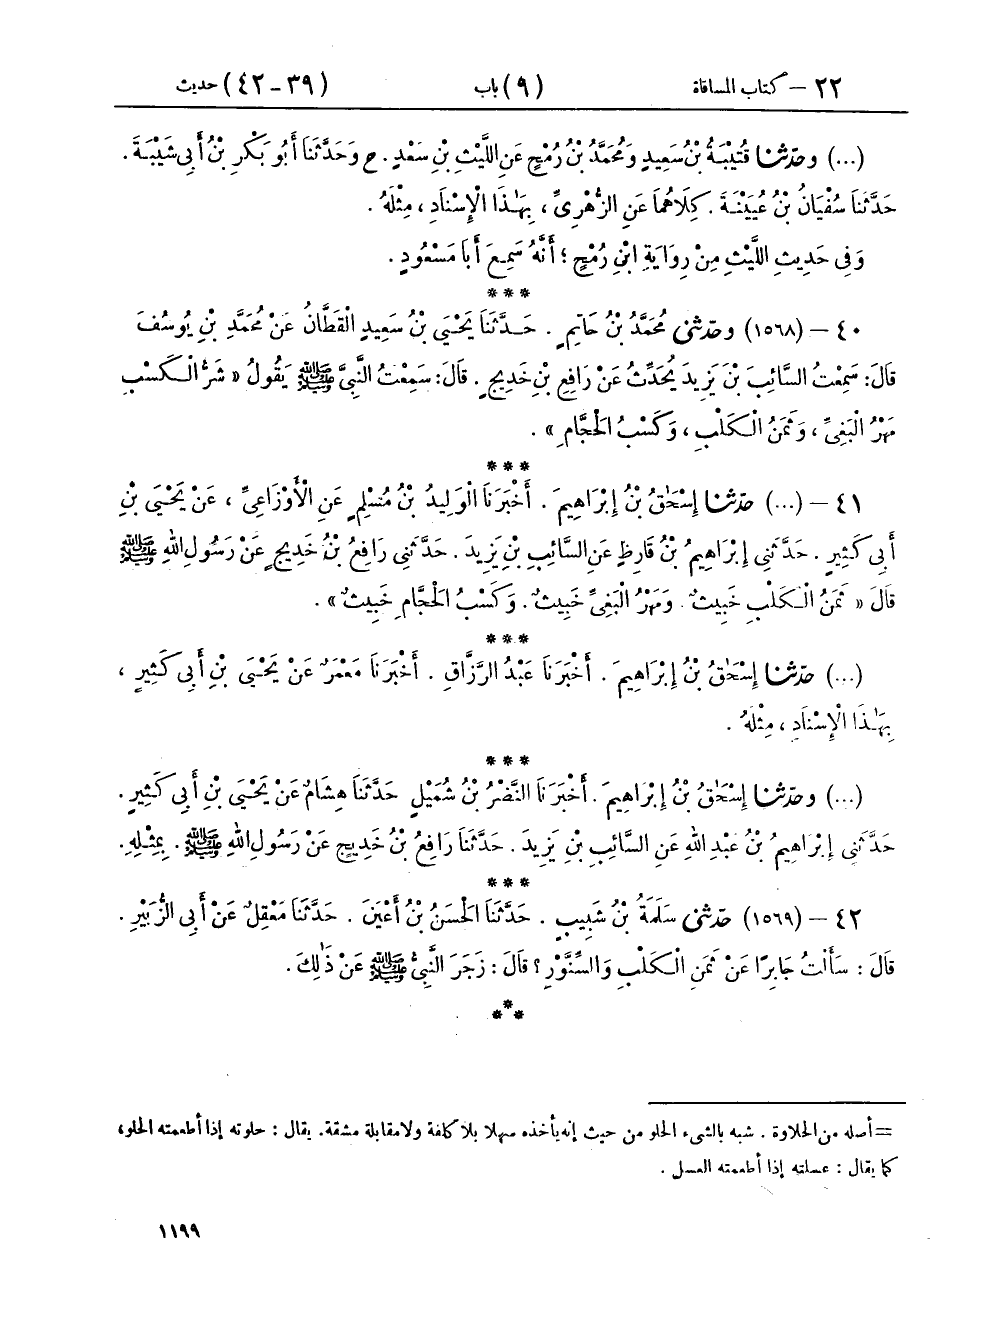 ٢٢ – كتاب المساقاة (٩) باب (٣٩-٤٢) حديث
(...) وحدّثنا قُتَيْبَةُ بْنُ سَعِيدٍ وَمُحَمَّدُ بْنُ رُمْحٍ عَنِ اللَّيْثِ بْنِ سَعْدٍ. ح وَحَدَّثَنَا أَبُو بَكْرِ بْنُ أَبِي شَيْبَةَ.
حَدَّثَنَا سُفْيَانُ بْنُ عُيَيْنَةَ. كِلَاهُمَا عَنِ الزُّهْرِيِّ، بِهَٰذَا الْإِسْنَادِ، مِثْلَهُ.
وَفِي حَدِيثِ اللَّيْثِ مِنْ رِوَايَةِ ابْنِ رُمْحٍ؛ أَنَّهُ سَمِعَ أَبَا مَسْعُودٍ.
***
٤٠ – (١٥٦٨) وحدّثنى مُحَمَّدُ بْنُ حَاتِمٍ. حَدَّثَنَا يَحْيَى بْنُ سَعِيدٍ الْقَطَّانُ عَنْ مُحَمَّدِ بْنِ يُوسُفَ
قَالَ: سَمِعْتُ السَّائِبَ بْنَ يَزِيدَ يُحَدِّثُ عَنْ رَافِعِ بْنِ خَدِيجٍ. قَالَ: سَمِعْتُ النَّبِيَّ ﷺ يَقُولُ «شَرُّ الْكَسْبِ
مَهْرُ الْبَغِيِّ، وَثَمَنُ الْكَلْبِ، وَكَسْبُ الْحَجَّامِ».
***
٤١ – (...) حدّثنا إِسْحَٰقُ بْنُ إِبْرَاهِيمَ. أَخْبَرَنَا الْوَلِيدُ بْنُ مُسْلِمٍ عَنِ الْأَوْزَاعِيِّ، عَنْ يَحْيَى بْنِ
أَبِي كَثِيرٍ. حَدَّثَنِي إِبْرَاهِيمُ بْنُ قَارِظٍ عَنِ السَّائِبِ بْنِ يَزِيدَ. حَدَّثَنِي رَافِعُ بْنُ خَدِيجٍ عَنْ رَسُولِ اللهِ ﷺ
قَالَ «ثَمَنُ الْكَلْبِ خَبِيثٌ. وَمَهْرُ الْبَغِيِّ خَبِيثٌ. وَكَسْبُ الْحَجَّامِ خَبِيثٌ».
***
(...) حدّثنا إِسْحَٰقُ بْنُ إِبْرَاهِيمَ. أَخْبَرَنَا عَبْدُ الرَّزَّاقِ. أَخْبَرَنَا مَعْمَرٌ عَنْ يَحْيَى بْنِ أَبِي كَثِيرٍ،
بِهَٰذَا الْإِسْنَادِ، مِثْلَهُ.
***
(...) وحدّثنا إِسْحَٰقُ بْنُ إِبْرَاهِيمَ. أَخْبَرَنَا النَّضْرُ بْنُ شُمَيْلٍ حَدَّثَنَا هِشَامٌ عَنْ يَحْيَى بْنِ أَبِي كَثِيرٍ.
حَدَّثَنِي إِبْرَاهِيمُ بْنُ عَبْدِ اللهِ عَنِ السَّائِبِ بْنِ يَزِيدَ. حَدَّثَنَا رَافِعُ بْنُ خَدِيجٍ عَنْ رَسُولِ اللهِ ﷺ. بِمِثْلِهِ.
***
٤٢ – (١٥٦٩) حدّثنى سَلَمَةُ بْنُ شَبِيبٍ. حَدَّثَنَا الْحَسَنُ بْنُ أَعْيَنَ. حَدَّثَنَا مَعْقِلٌ عَنْ أَبِي الزُّبَيْرِ.
قَالَ: سَأَلْتُ جَابِرًا عَنْ ثَمَنِ الْكَلْبِ وَالسِّنَّوْرِ؟ قَالَ: زَجَرَ النَّبِيُّ ﷺ عَنْ ذَٰلِكَ.
***
= أصله من الحلاوة. شبه بالشىء الحلو من حيث إنه يأخذه سهلا بلا كلفة ولا مقابلة مشقة. يقال: حلوته إذا أطعمته الحلو،
كما يقال: عسلته إذا أطعمته العسل.
١١٩٩